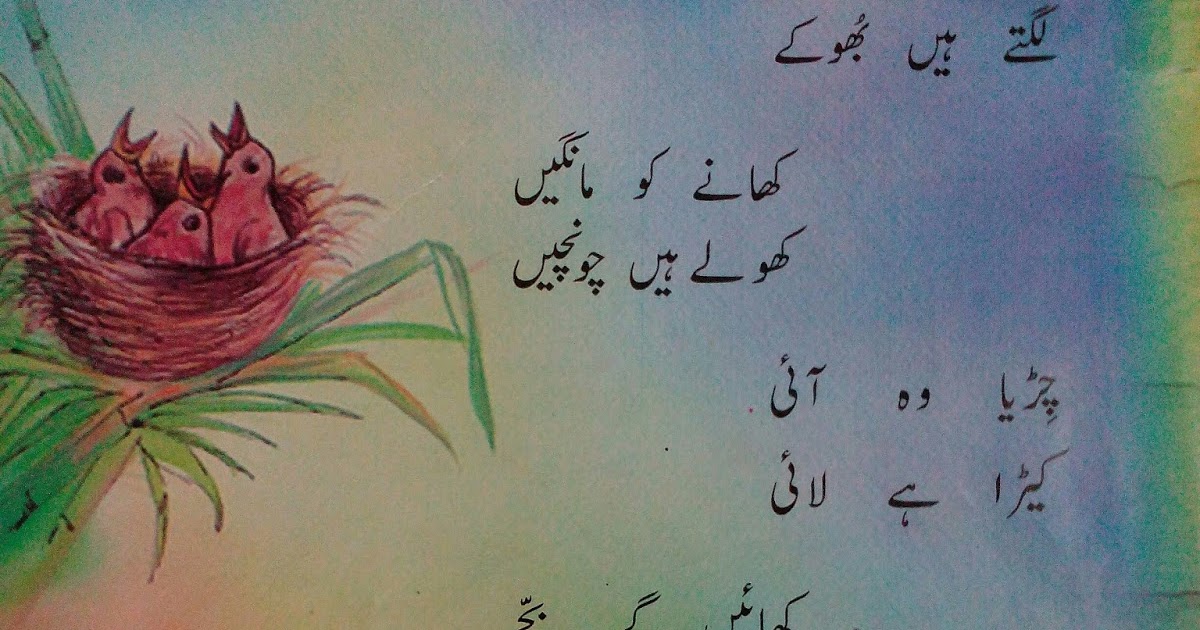 لگتے ہیں بُھوکے
کھانے کو مانگیں
کھولے ہیں چونچیں
چِڑیا وہ آئی
کیڑا ہے لائی
کھائیں گے بچّے